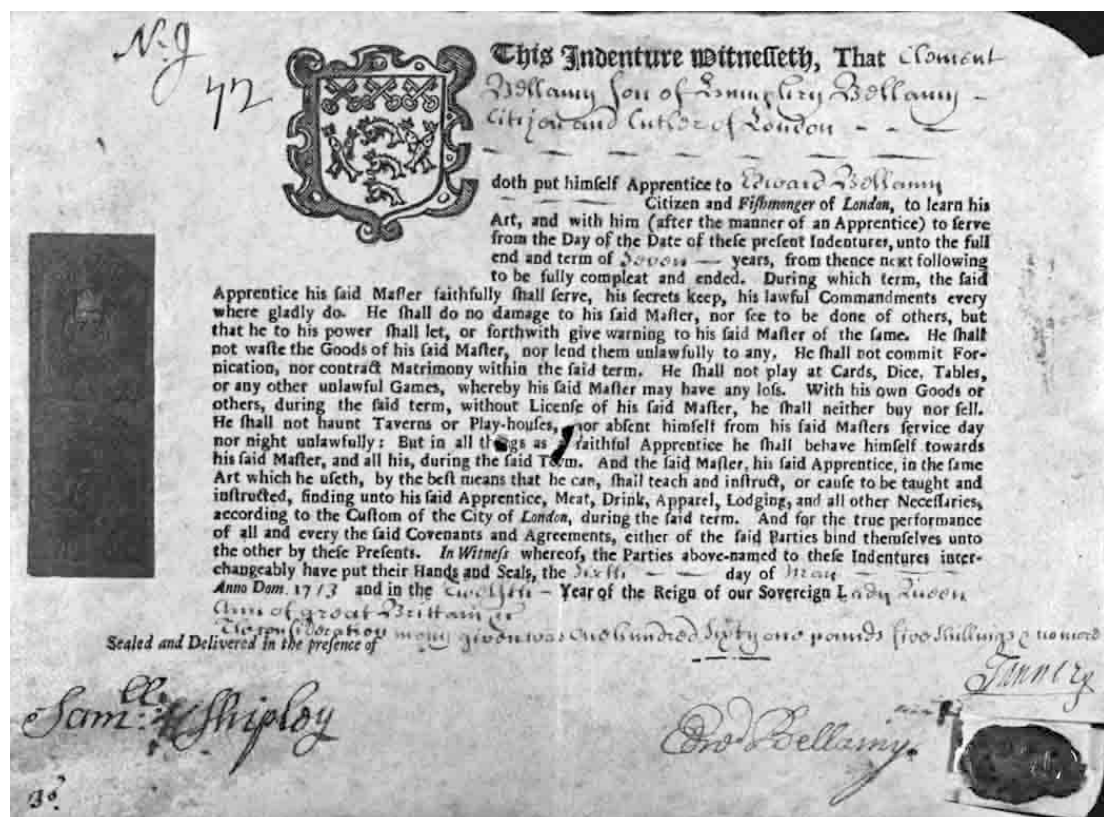 No. J
72
This Indenture Witnesseth, That Clement
Bellamy son of Humphry Bellamy -
Citizen and Cutler of London - - -
doth put himself Apprentice to Edward Bellamy
Citizen and Fishmonger of London, to learn his
Art, and with him (after the manner of an Apprentice) to serve
from the Day of the Date of these present Indentures, unto the full
end and term of Seven — years, from thence next following
to be fully compleat and ended. During which term, the said
Apprentice his said Master faithfully shall serve, his secrets keep, his lawful Commandments every
where gladly do. He shall do no damage to his said Master, nor see to be done of others, but
that he to his power shall let, or forthwith give warning to his said Master of the same. He shall
not waste the Goods of his said Master, nor lend them unlawfully to any. He shall not commit For-
nication, nor contract Matrimony within the said term. He shall not play at Cards, Dice, Tables,
or any other unlawful Games, whereby his said Master may have any loss. With his own Goods or
others, during the said term, without License of his said Master, he shall neither buy nor sell.
He shall not haunt Taverns or Play-houses, nor absent himself from his said Masters service day
nor night unlawfully: But in all things as a faithful Apprentice he shall behave himself towards
his said Master, and all his, during the said Term. And the said Master, his said Apprentice, in the same
Art which he useth, by the best means that he can, shall teach and instruct, or cause to be taught and
instructed, finding unto his said Apprentice, Meat, Drink, Apparel, Lodging, and all other Necessaries,
according to the Custom of the City of London, during the said term. And for the true performance
of all and every the said Covenants and Agreements, either of the said Parties bind themselves unto
the other by these Presents. In Witness whereof, the Parties above-named to these Indentures inter-
changeably have put their Hands and Seals, the Sixth — — day of May
Anno Dom. 1713 and in the Twelfth - Year of the Reign of our Sovereign Lady Queen
Ann of great Brittain &c
The consideration mony given was one hundred Sixty one pounds five shillings & no more
Sealed and Delivered in the presence of
Saml: Shipley
Edwd Bellamy